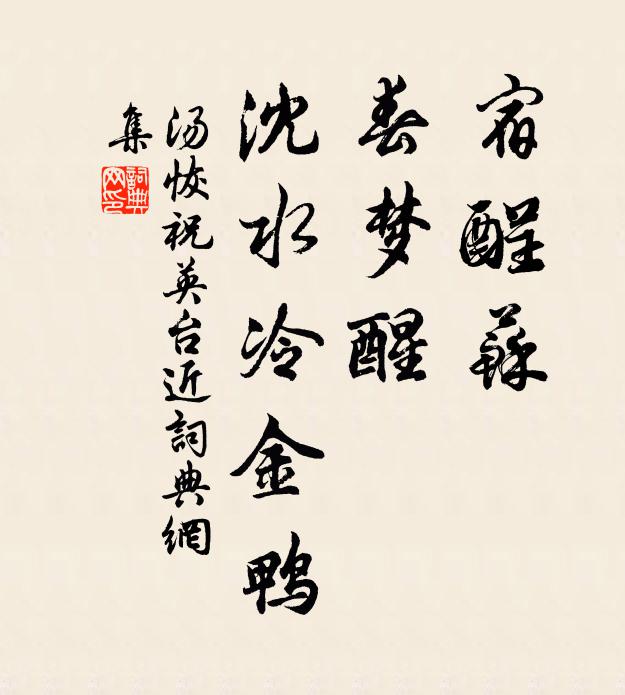 宿酲蘇
春梦醒
沈水冷金鸭
汤恢祝英台近詞典網
集
詞典网印